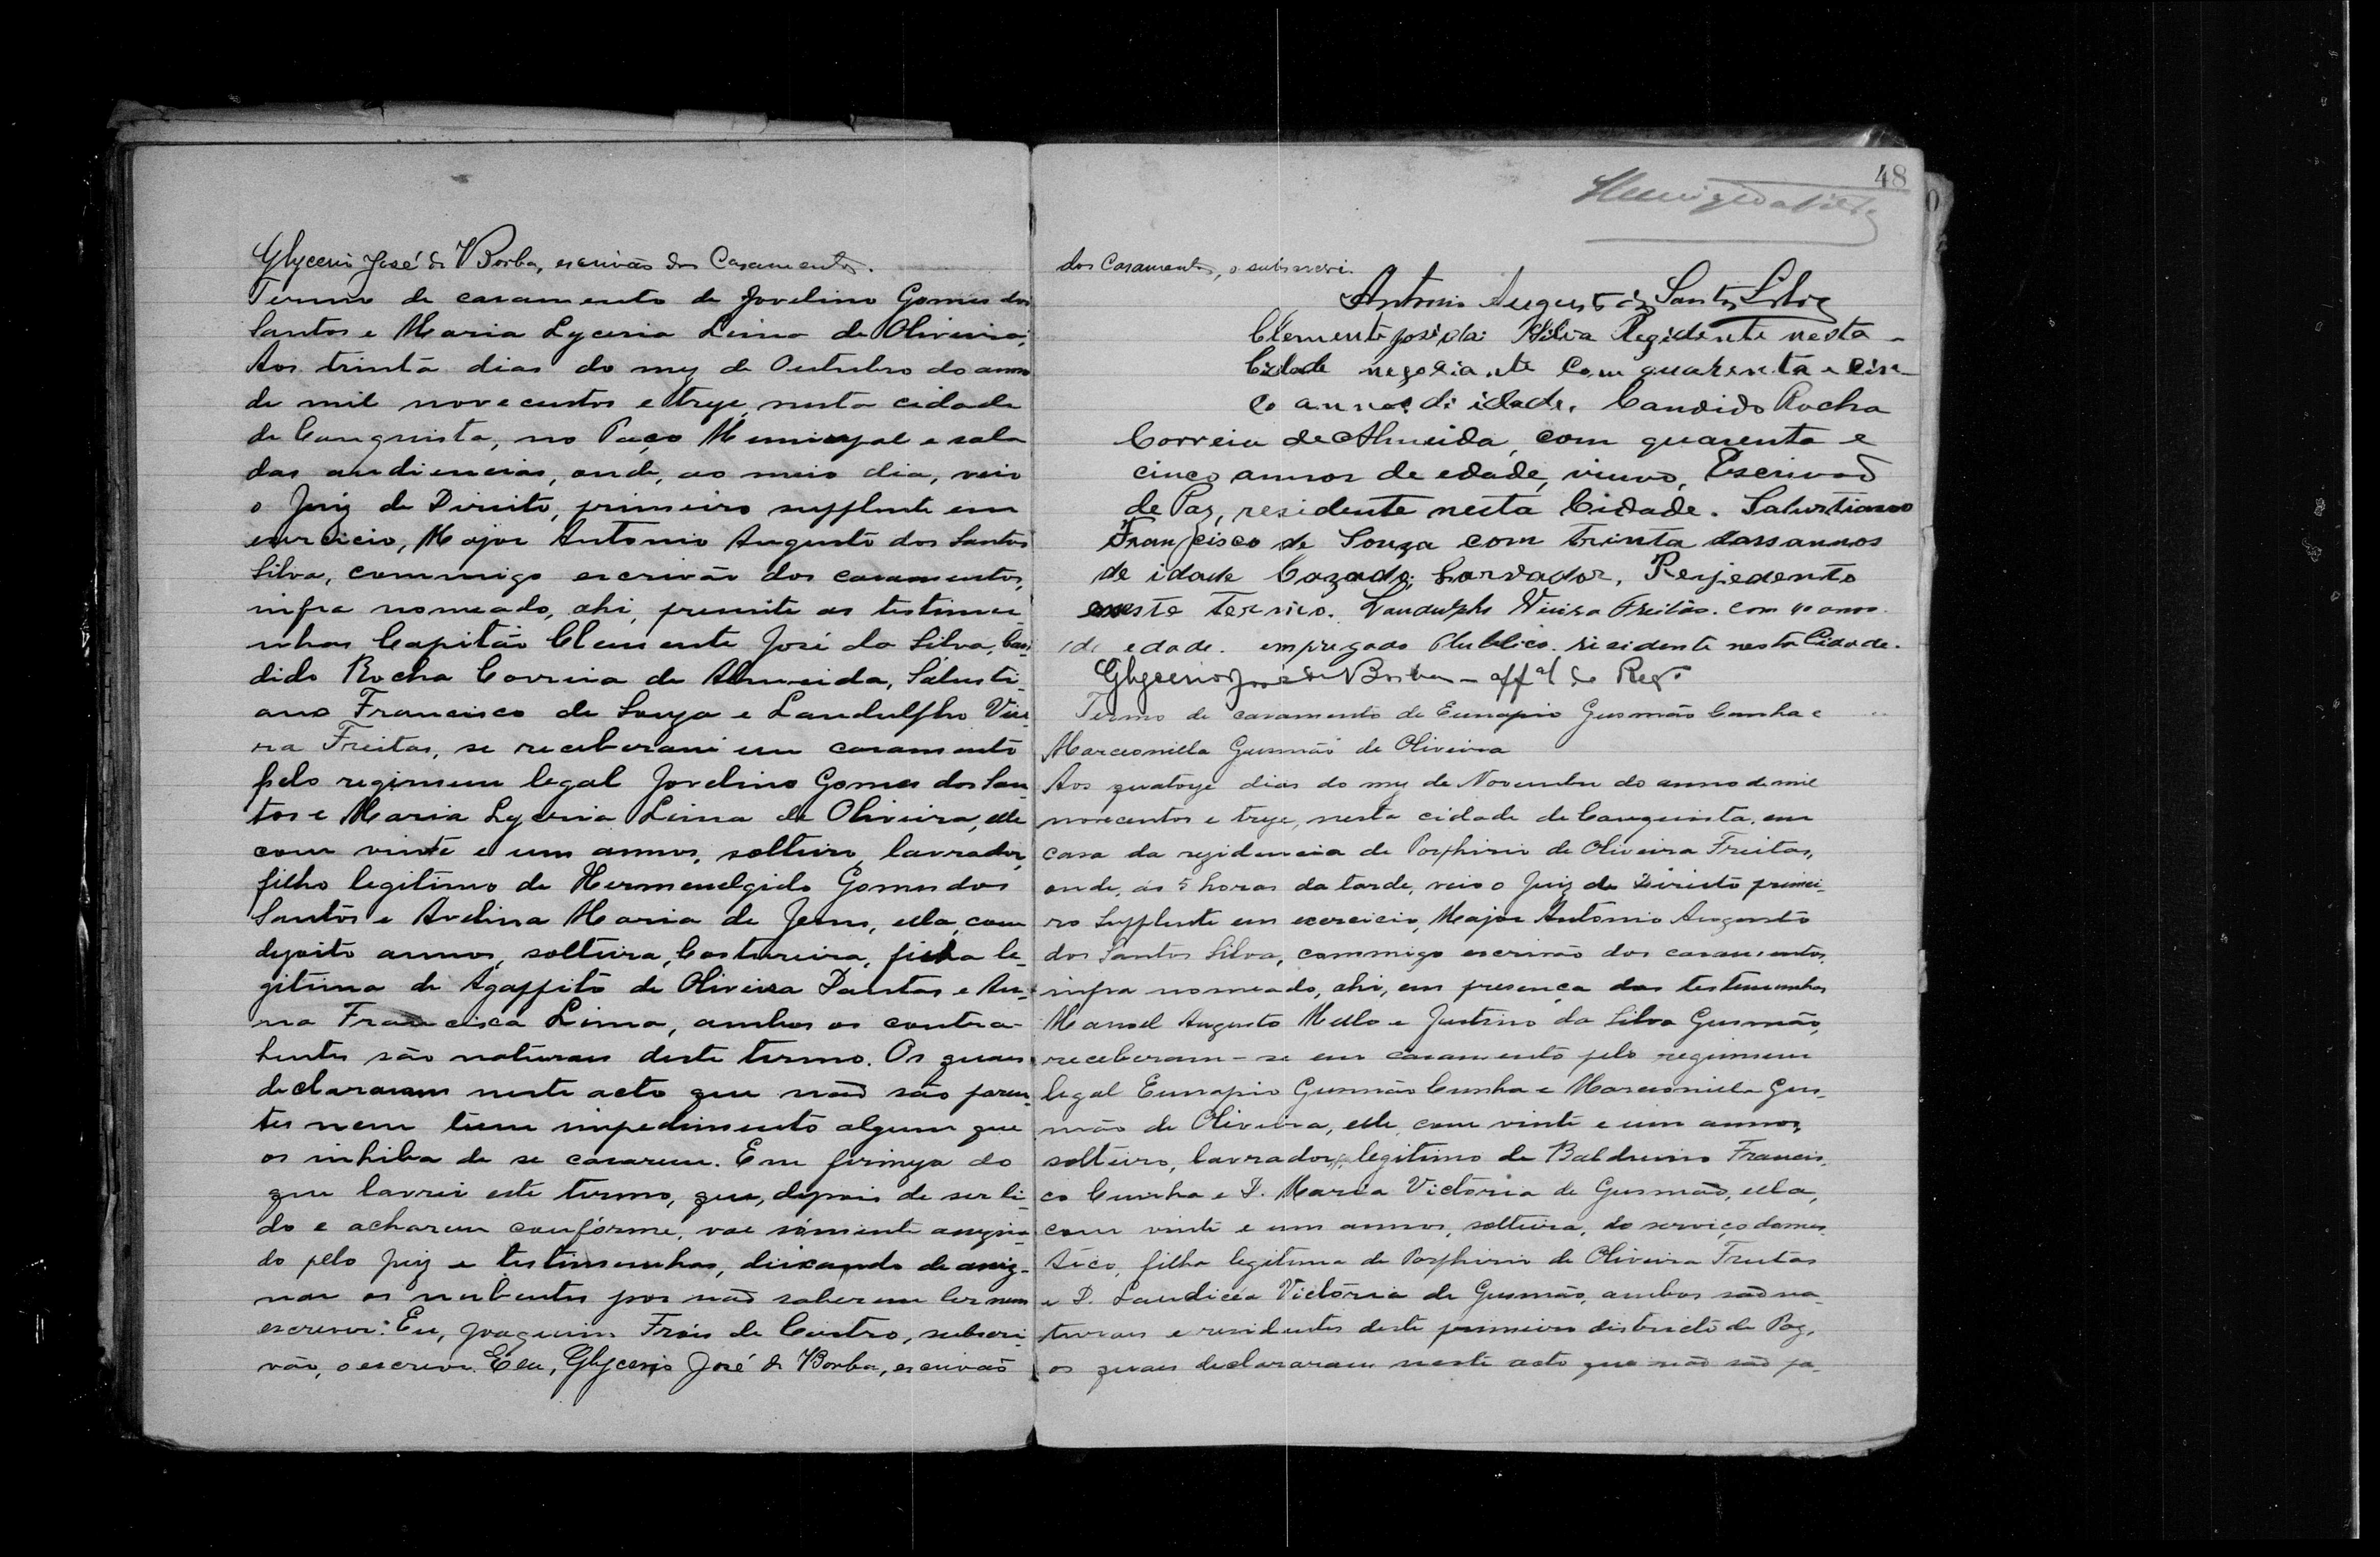 Glycerio José de Borba, escrivão dos Casamentos.
Termo de casamento de Jovelino Gomes dos
Santos e Maria Lyceria Lima de Oliveira,
Aos trinta dias do mez de Outubro do anno
de mil novecentos e treze, nesta cidade
de Conquista, no Paço Municipal e sala
das audiencias, onde, ao meio dia, veio
o Juiz de Direito, primeiro supplente em
exercicio, Major Antonio Augusto dos Santos
Silva, commigo escrivão dos casamentos,
infra nomeado, ahi, presente as testimu-
nhas Capitão Clemente José da Silva, Can-
dido Rocha Correia de Almeida, Salusti-
ano Francisco de Souza e Landulpho Viei-
ra Freitas, se receberam em casamento
pelo regimem legal Jovelino Gomes dos San-
tos e Maria Lyceria Lima de Oliveira, elle
com vinte e um annos, solteiro, lavrador,
filho legitimo de Hermenelgido Gomes dos
Santos e Avelina Maria de Jesus, ella, com
dezoito annos, solteira, Costureira, filha le-
gitima de Agappito de Oliveira Dantas e An-
na Francisca Lima, ambos os contra-
hentes são naturaes deste termo. Os quaes
declararam neste acto que não são paren-
tes nem teem impedimento algum que
os inhiba de se casarem. Em firmeza do
que lavrei este termo, que, depois de ser li-
do e acharem conforme, vae sómente assigna-
do pelo Juiz e testimunhas, deixando de assig-
nar os nubentes por não saberem ler nem
escrever. Eu, Joaquim Fróis de Castro, subscri-
vão, o escrevi. E eu, Glycerio José de Borba, escrivão
48
dos Casamentos, o subscrevi.
Antonio Augusto dos Santos Silva
Clemente José da Silva Rezidente nesta
Cidade negociante Com quarenta e cin-
co annos di idade. Candido Rocha
Correia de Almeida, com quarenta e
cinco annos de edade, viuvo, Escrivão
de Paz, residente nesta Cidade. Salustiano
Francisco de Souza com trinta annos
de idade Cazado,
neste Landulpho Vieira Freitas. com 40 anos
de edade. empregado Publico. residente nesta Cidade.
Glycerio José de Borba - offal do Regº
Termo de casamento de Eunapio Gusmão Cunha e
Marcionilla Gusmão de Oliveira
Aos quatorze dias do mez de Novembro do anno de mil
novecentos e treze, nesta cidade de Conquista, em
casa da rezidencia de Porphirio de Oliveira Freitas,
onde, ás 5 horas da tarde, veio o Juiz de Direito primei-
ro Supplente em exercicio, Major Antonio Augusto
dos Santos Silva, commigo escrivão dos casamentos,
infra nomeado, ahi, em presença das testemunhas
Manoel Augusto Mello e Justino da Silva Gusmão,
receberam-se em casamento pelo regimem
legal Eunapio Gusmão Cunha e Marcionilla Gus-
mão de Oliveira, elle, com vinte e um annos,
solteiro, lavrador, legitimo de Balduino Francis-
co Cunha e D. Maria Victoria de Gusmão, ella,
com vinte e um annos, solteira, do serviço domes-
tico, filha legitima de Porphirio de Oliveira Freitas
e D. Laudicéa Victória de Gusmão, ambos são na-
turaes e residentes deste primeiro districto de Paz,
os quaes declararam neste acto que não são pa-